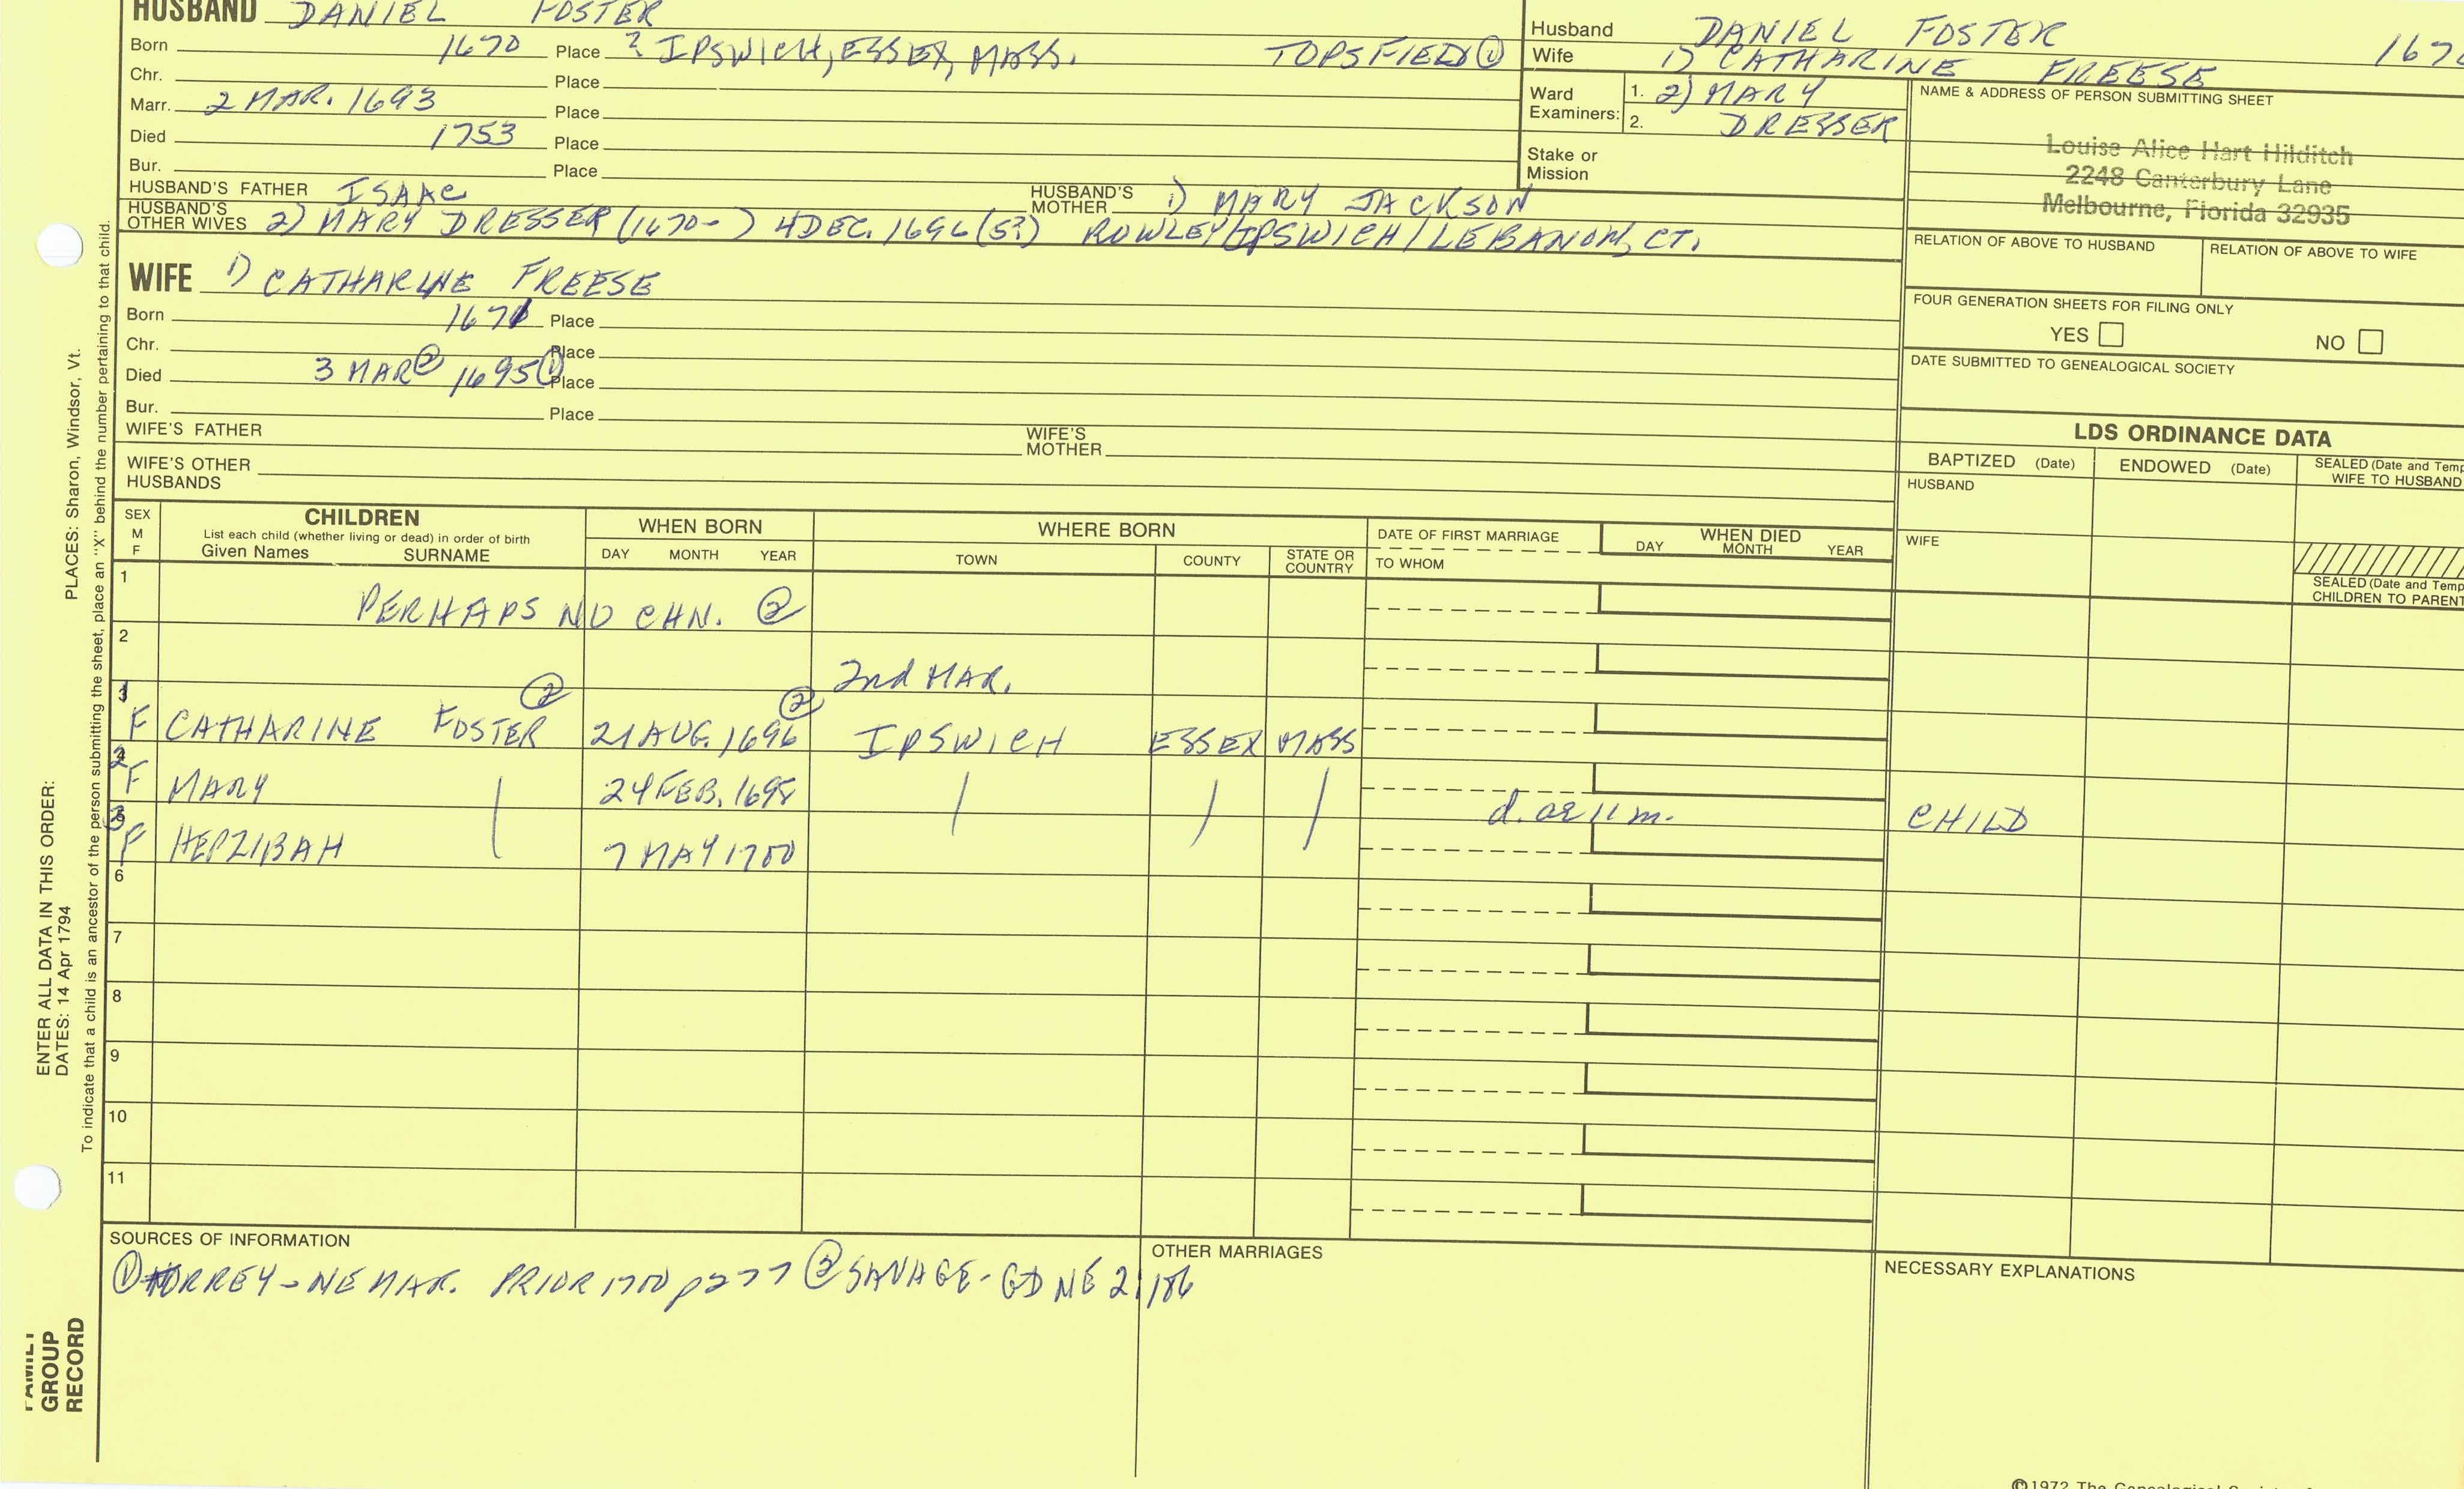 HUSBAND DANIEL FOSTER
Born 1670 Place ? IPSWICH, ESSEX, MASS. TOPSFIELD ①
Chr. Place
Marr. 2 MAR. 1693 Place
Died 1753 Place
Bur. Place
HUSBAND'S FATHER ISAAC HUSBAND'S MOTHER 1) MARY JACKSON
HUSBAND'S OTHER WIVES 2) MARY DRESSER (1670- ) 4 DEC. 1696 (5?) ROWLEY/IPSWICH/LEBANON, CT.
WIFE 1) CATHARINE FREESE
Born 1671 Place
Chr. Place
Died 3 MAR ② 1695 ① Place
Bur. Place
WIFE'S FATHER WIFE'S MOTHER
WIFE'S OTHER HUSBANDS
Husband DANIEL FOSTER 167
Wife 1) CATHARINE FREESE
Ward Examiners: 1. 2) MARY
2. DRESSER
Stake or Mission
NAME & ADDRESS OF PERSON SUBMITTING SHEET
Louise Alice Hart Hilditch
2248 Canterbury Lane
Melbourne, Florida 32935
RELATION OF ABOVE TO HUSBAND RELATION OF ABOVE TO WIFE
FOUR GENERATION SHEETS FOR FILING ONLY
YES NO
DATE SUBMITTED TO GENEALOGICAL SOCIETY
LDS ORDINANCE DATA
BAPTIZED (Date) ENDOWED (Date) SEALED (Date and Temp
WIFE TO HUSBAND
HUSBAND
WIFE
SEALED (Date and Temp
CHILDREN TO PARENT
SEX M F CHILDREN
List each child (whether living or dead) in order of birth
Given Names SURNAME
WHEN BORN
DAY MONTH YEAR
WHERE BORN
TOWN COUNTY STATE OR COUNTRY
DATE OF FIRST MARRIAGE
TO WHOM
WHEN DIED
DAY MONTH YEAR
1 PERHAPS NO CHN. ②
2 2nd MAR.
1 F CATHARINE FOSTER ② 21 AUG. 1696 ② IPSWICH ESSEX MASS
2 F MARY 24 FEB. 1698
d. ae 11 m. CHILD
3 F HEPZIBAH 7 MAY 1700
6
7
8
9
10
11
SOURCES OF INFORMATION
① TORREY - NE MAR. PRIOR 1700 p277 ② SAVAGE - GD NE 2:186
OTHER MARRIAGES
NECESSARY EXPLANATIONS
©1972 The Genealogical Society
PLACES: Sharon, Windsor, Vt.
ENTER ALL DATA IN THIS ORDER:
DATES: 14 Apr 1794
To indicate that a child is an ancestor of the person submitting the sheet, place an "X" behind the number pertaining to that child.
FAMILY
GROUP
RECORD